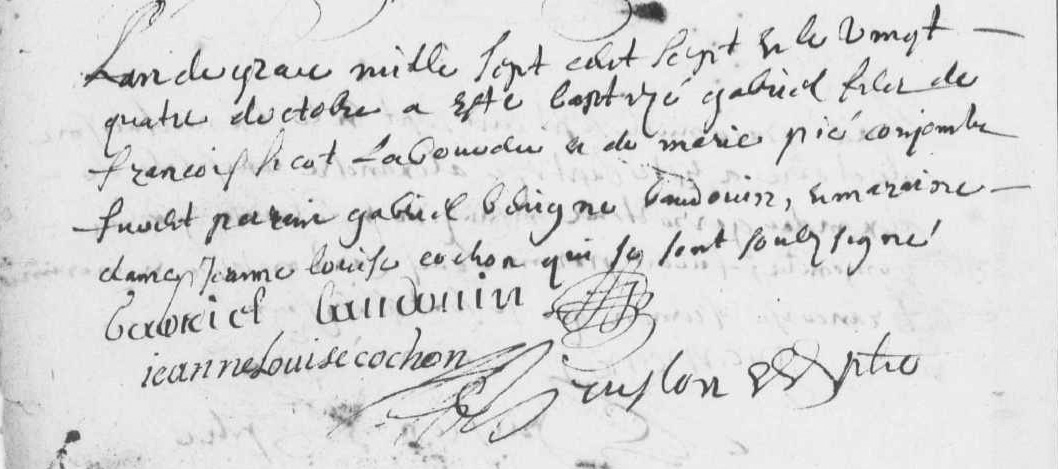 Lan de grace mille sept cent sept & le vingt
quatre doctobre a este baptizé gabriel filz de
francois hicot Labourdeur & de marie pié conjointz
furent parain gabriel baudouin, & maraine
dame Jeanne louise cochon qui se sont soubz signé
Gabriel baudouin
jeanne Louise cochon